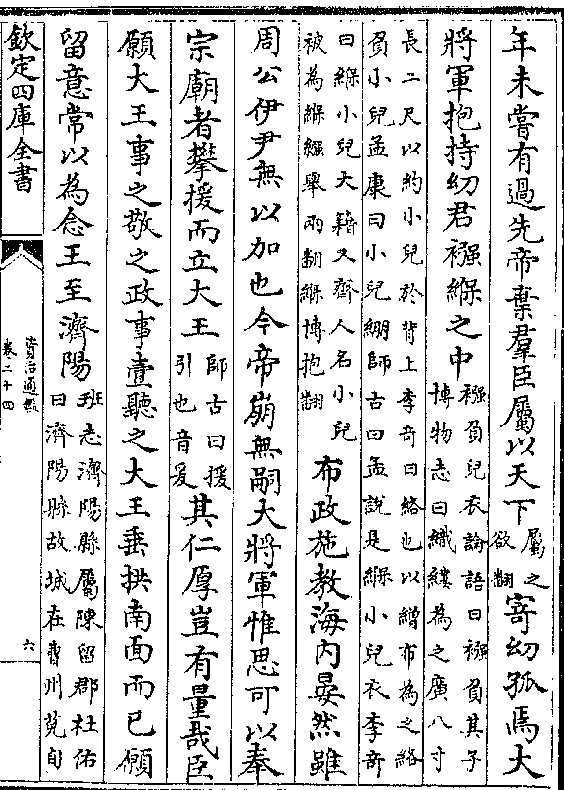 年未嘗有過先帝棄羣臣屬以天下屬之欲翻寄幼孤焉大
將軍抱持幼君襁緥之中襁負兒衣論語曰襁負其子博物志曰織縷為之廣八寸
長二尺以約小兒於背上李奇曰絡也以繒布為之絡負小兒孟康曰小兒綳師古曰孟說是緥小兒衣李奇
曰緥小兒大藉又齊人名小兒被為緥襁舉兩翻緥博抱翻布政施教海内晏然雖
周公伊尹無以加也今帝崩無嗣大將軍惟思可以奉
宗廟者攀援而立大王師古曰援引也音爰其仁厚豈有量哉臣
願大王事之敬之政事壹聽之大王垂拱南面而已願
留意常以為念王至濟陽班志濟陽縣屬陳留郡杜佑曰濟陽縣故城在曹州冤句
欽定四庫全書
資治通鑑
卷二十四
六